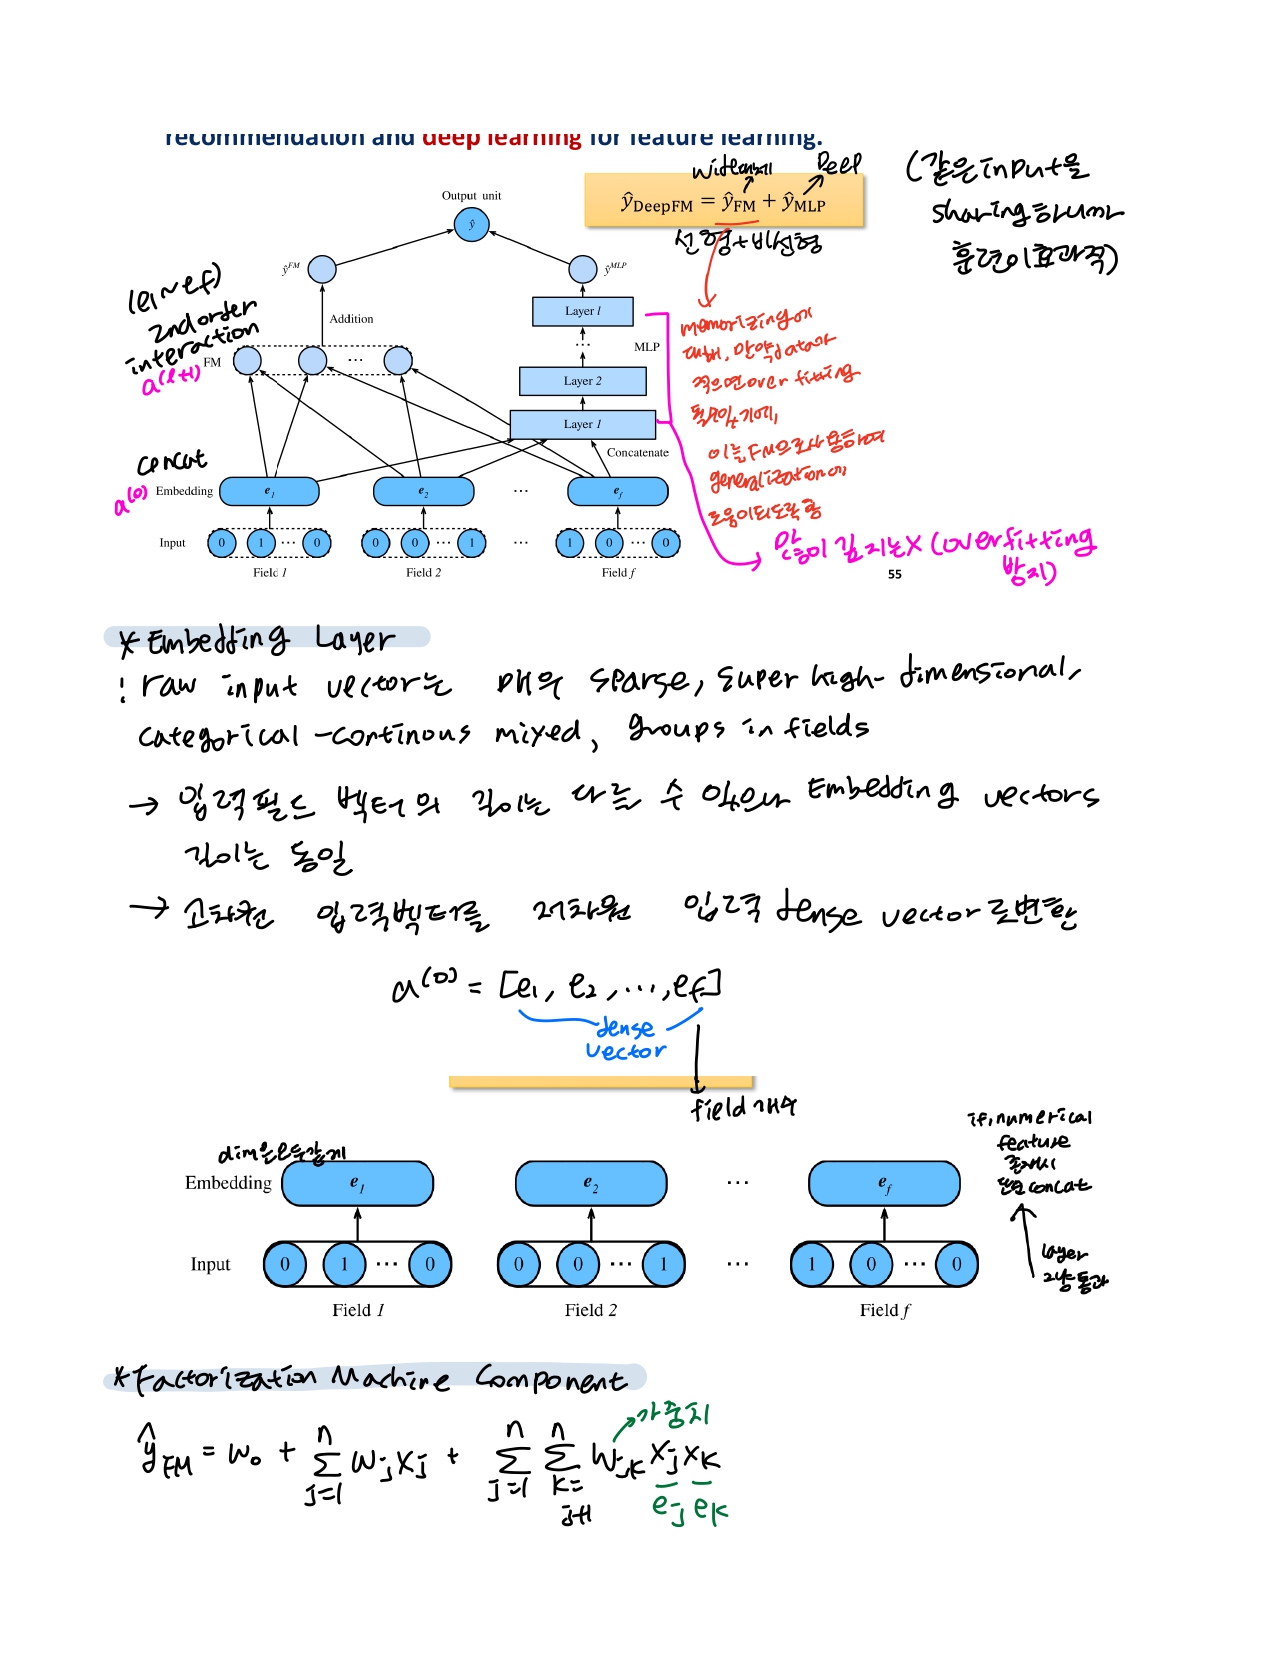 recommendation and deep learning for feature learning.
Deep
ŷDeepFM = ŷFM + ŷMLP
선형+비선형
(같은 input을
sharing하니까
훈련이 효과적)
Output unit
ŷ
ŷFM
ŷMLP
(e1~ef)
2nd order
interaction
a(l+1)
Addition
FM
...
Layer l
...
MLP
Layer 2
Layer 1
Concatenate
memorizing에
대해, 만약 data가
적으면 over fitting
이는 FM으로 사용하여
generalization에
도움이 되도록 함
concat
a(0)
Embedding
e1
e2
...
ef
Input
0 1 ... 0
0 0 ... 1
...
1 0 ... 0
Field 1
Field 2
Field f
→ 많이 깊지는 X (overfitting
방지)
55
* Embedding Layer
: raw input vector는 매우 sparse, super high-dimensional,
categorical-continous mixed, groups in fields
→ 입력필드 벡터의 길이는 다를 수 있으나 Embedding vectors
길이는 동일
→ 고차원 입력벡터를 저차원 입력 dense vector로 변환
a(0) = [e1, e2, ..., ef]
dense
vector
field 개수
dim은 모두 같게
if, numerical
feature
존재시
concat
layer
그냥 통과
Embedding
e1
e2
...
ef
Input
0 1 ... 0
0 0 ... 1
...
1 0 ... 0
Field 1
Field 2
Field f
* Factorization Machine Component
가중치
ŷFM = w0 + Σ(j=1, n) wj xj + Σ(j=1, n) Σ(k=j+1, n) wjk xj xk
ej ek